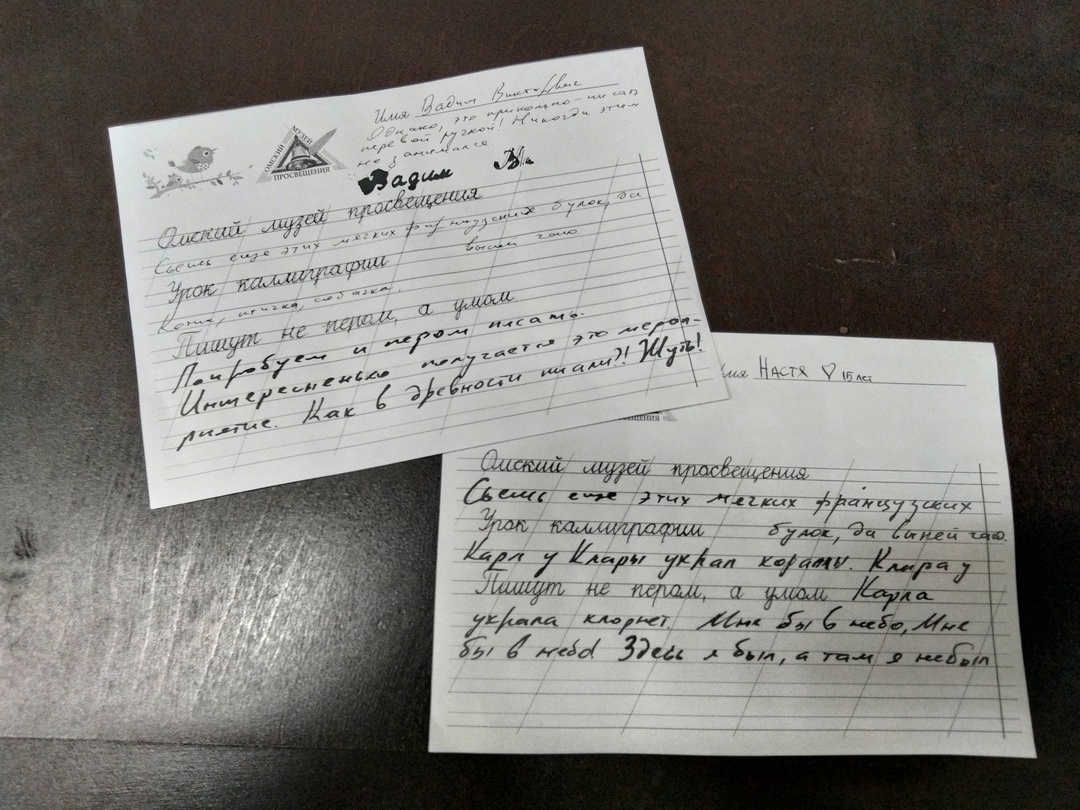 Имя Вадим Викт
Однако, это прикольно - писать
перевой ручкой! Никогда этим
не занимался
ОМСКИЙ МУЗЕЙ ПРОСВЕЩЕНИЯ
Вадим В.
Омский музей просвещения
Съешь еще этих мягких французских булок, да
выпей чаю
Урок каллиграфии
птичка, собачка.
Пишут не пером, а умом
Попробуем и пером писать.
Интересненько получается это мероп-
риятие. Как в древности писали?! Жуть!
Имя НАСТЯ ♡ 15 лет
Омский музей просвещения
Съешь еще этих мягких французских
Урок каллиграфии булок, да выпей чаю.
Карл у Клары украл кораллы. Клара у
Пишут не пером, а умом Карла
украла клорнет. Мне бы в небо, Мне
бы в небо! Здесь я был, а там я небыл